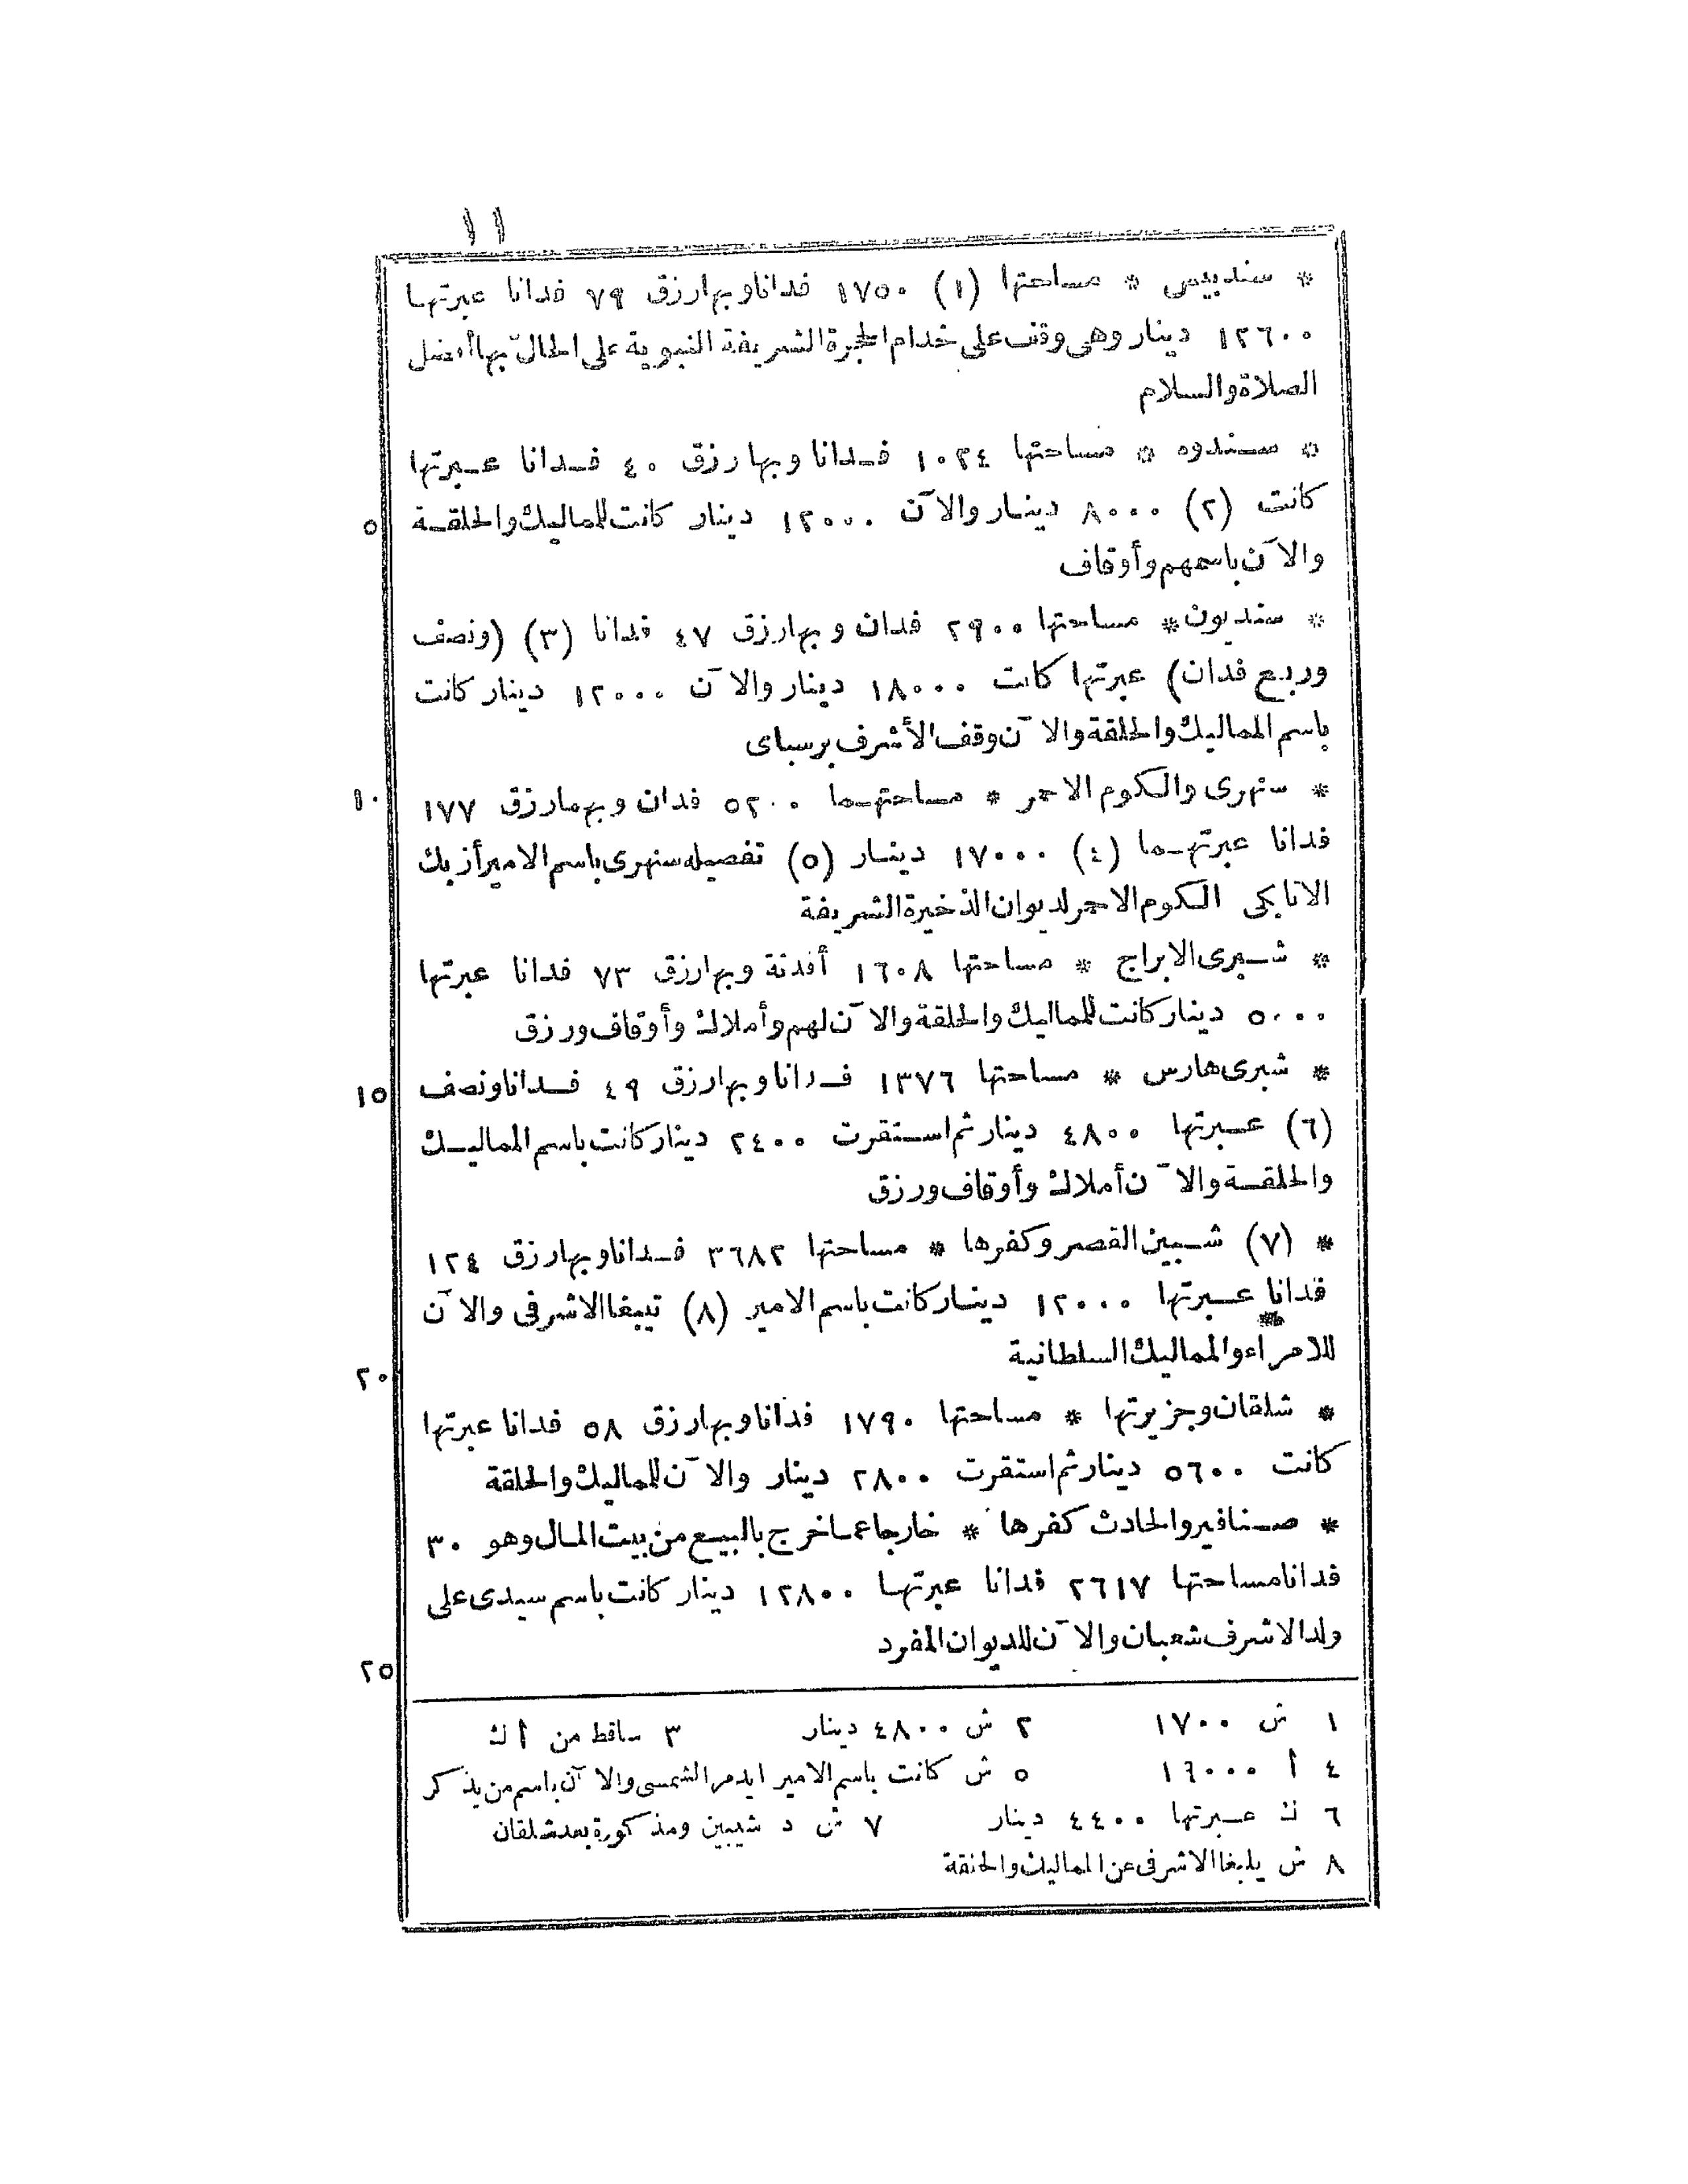 ١١
* سندبيس * مساحتها (١) ١٧٥٠ فداناوبهارزق ٧٩ فدانا عبرتها
١٢٦٠٠ دينار وهى وقف على خدام الحجرة الشريفة النبوية على الحالّ بها أفضل
الصلاة والسلام
* سندوه * مساحتها ١٠٢٤ فدانا وبها رزق ٤٠ فدانا عبرتها
كانت (٢) ٨٠٠٠ دينار والآن ١٢٠٠٠ دينار كانت للماليك والحلقة
٥
والآن باسمهم وأوقاف
* سنديون * مساحتها ٢٩٠٠ فدان وبهارزق ٤٧ فدانا (٣) (ونصف
وربع فدان) عبرتها كانت ١٨٠٠٠ دينار والآن ١٢٠٠٠ دينار كانت
باسم المماليك والحلقة والآن وقف الأشرف برسباى
* سنهرى والكوم الاحمر * مساحتهما ٥٢٠٠ فدان وبهمارزق ١٧٧
١٠
فدانا عبرتهما (٤) ١٧٠٠٠ دينار (٥) تفصيله سنهرى باسم الامير أزبك
الاتابكى الكوم الاحمر لديوان الذخيرة الشريفة
* شبرى الابراج * مساحتها ١٦٠٨ أفدنة وبهارزق ٧٣ فدانا عبرتها
٥٠٠٠ دينار كانت للمماليك والحلقة والآن لهم وأملاك وأوقاف ورزق
* شبرى هارس * مساحتها ١٣٧٦ فدانا وبهارزق ٤٩ فدانا ونصف
١٥
(٦) عبرتها ٤٨٠٠ دينار ثم استقرت ٢٤٠٠ دينار كانت باسم المماليك
والحلقة والآن أملاك وأوقاف ورزق
* (٧) شبين القصر وكفرها * مساحتها ٣٦٨٢ فدانا وبهارزق ١٢٤
فدانا عبرتها ١٢٠٠٠ دينار كانت باسم الامير (٨) تيبغا الاشرفى والآن
للامراء والمماليك السلطانية
٢٠
* شلقان وجزيرتها * مساحتها ١٧٩٠ فدانا وبهارزق ٥٨ فدانا عبرتها
كانت ٥٦٠٠ دينار ثم استقرت ٢٨٠٠ دينار والآن للماليك والحلقة
* صنافير والحادث كفرها * خارجا عما خرج بالبيع من بيت المال وهو ٣٠
فدانا مساحتها ٢٦١٧ فدانا عبرتها ١٢٨٠٠ دينار كانت باسم سيدى على
ولد الاشرف شعبان والآن للديوان المفرد
٢٥
١ ش ١٧٠٠ ٢ ش ٤٨٠٠ دينار ٣ ساقط من أ ك
٤ أ ١٦٠٠٠ ٥ ش كانت باسم الامير ايدمر الشمسى والآن باسم من يذكر
٦ ك عبرتها ٤٤٠٠ دينار ٧ ش د شيبين ومذكورة بعد شلقان
٨ ش يلبغا الاشرفى عن المماليك والحلقة